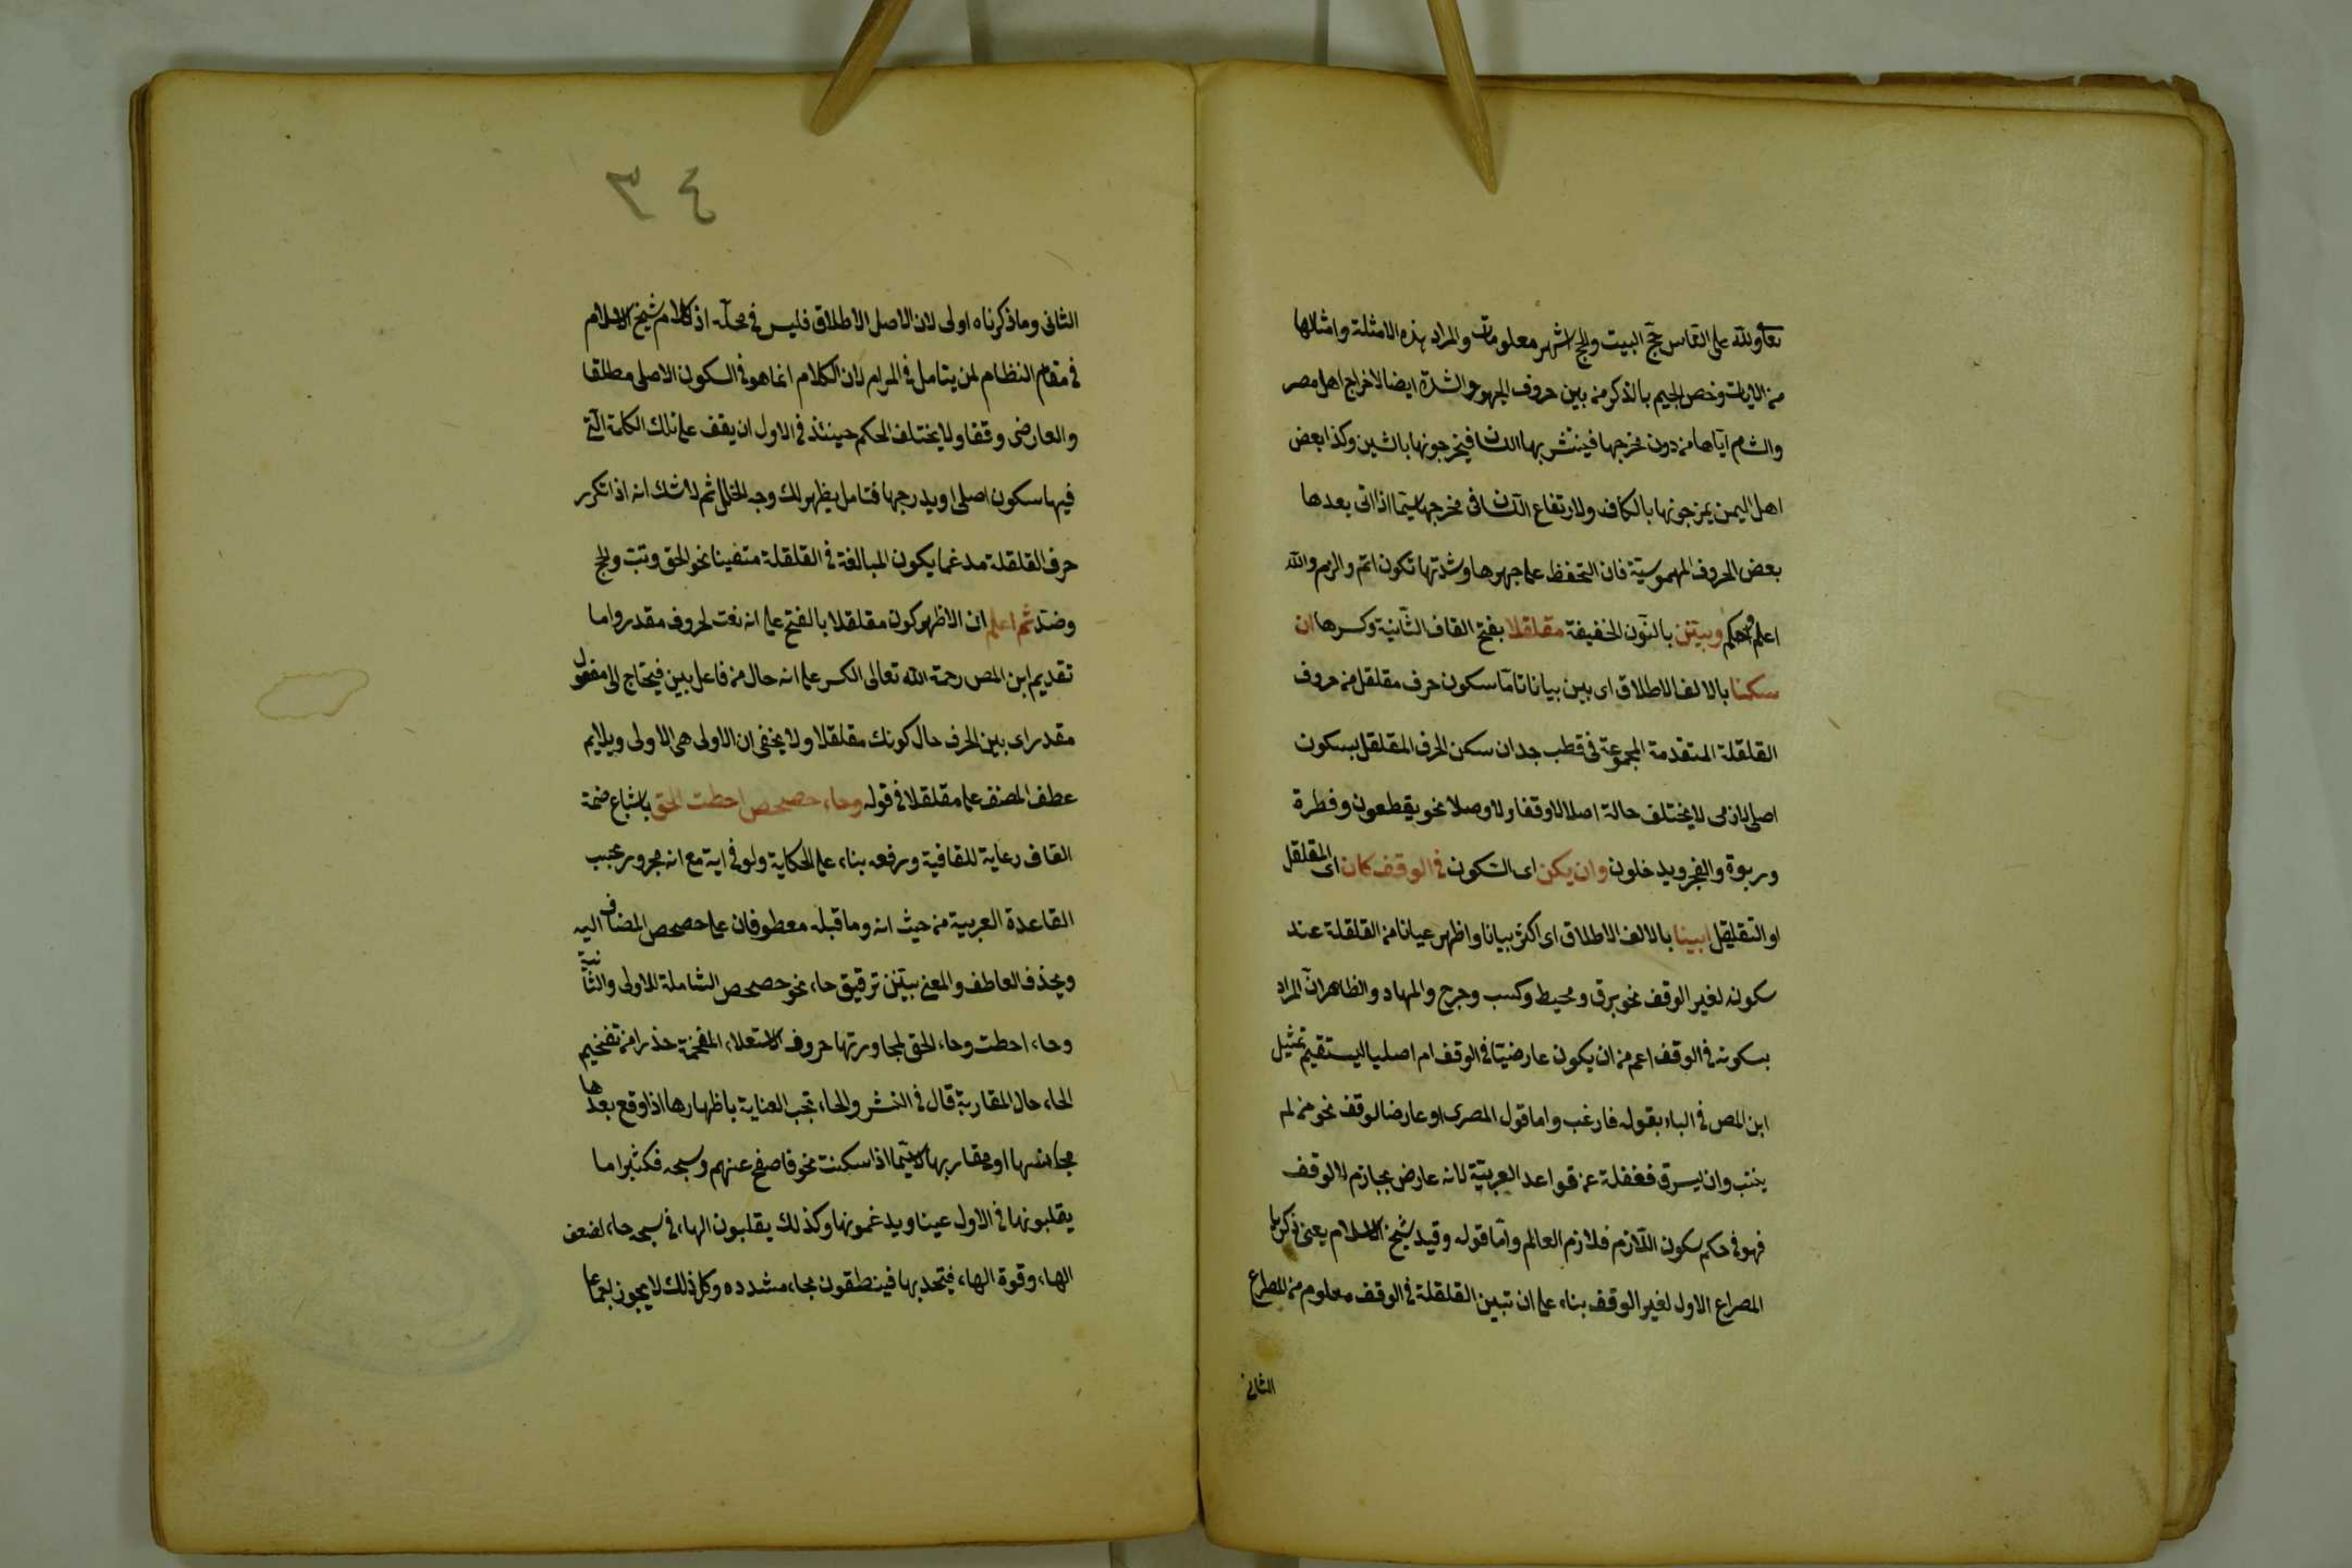 تعالى ولله على الناس حج البيت والحج اشهر معلومات والمراد بهذه الامثلة وامثالها
من الايات وخص الجيم بالذكر من بين حروف الجهر والشدة ايضا لاخراج اهل مصر
والشام اياها من دون مخرجها فينتشر بها اللسان فيخرجونها بالشين وكذا بعض
اهل اليمن يمزجونها بالكاف ولارتفاع اللسان في مخرجها لاسيما اذا اتى بعدها
بعض الحروف المهموسية فان التحفظ على جهرها وشدتها تكون اتم والزم والله
اعلم واحكم وبينن بالنون الخفيفة مقلقلا بفتح القاف الثانية وكسرها ان
سكنا بالالف الاطلاق اى بين بيانا تاما سكون حرف مقلقل من حروف
القلقلة المتقدمة المجموعة في قطب جد ان سكن الحرف المقلقل بسكون
اصلى لازمى لا يختلف حالة اصلا لا وقفا ولا وصلا نحو يقطعون وفطرة
وربوة والفجر ويدخلون وان يكن اى السكون في الوقف كان اى المقلقل
او التقلقل ابينا بالالف الاطلاق اى اكثر بيانا واظهر عيانا من القلقلة عند
سكونه لغير الوقف نحو برق ومحيط وكسب وجرج والمهاد والظاهر ان المراد
بسكونه في الوقف اعم من ان يكون عارضيا في الوقف ام اصليا ليستقيم تمثيل
ابن المص في الباء بقوله فارغب واما قول المصرى او عارضا لوقف نحو من لم
يتب وان يسرق فغفلة عن قواعد العربية لانه عارض بجازم لا لوقف
فهو في حكم سكون اللازم فلازم العالم واما قوله وقيد شيخ الاسلام يعنى زكريا
المصراع الاول لغير الوقف بناء على ان تبين القلقلة في الوقف معلوم من المصراع
الثاني
٣٤
الثانى وما ذكرناه اولى لان الاصل الاطلاق فليس في محله اذ كلام شيخ الاسلام
في مقام النظام لمن يتامل في المرام لان الكلام انما هو في السكون الاصلى مطلقا
والعارضى وقفا ولا يختلف الحكم حينئذ في الاول ان يقف على تلك الكلمة التي
فيها سكون اصلى او يدرجها فتامل يظهر لك وجه الخلل ثم لا شك انه اذا تكرر
حرف القلقلة مدغما يكون المبالغة في القلقلة متفينا نحو الحق وتب والحج
وضد ثم اعلم ان الاظهر كون مقلقلا بالفتح على انه نعت لحروف مقدر واما
تقديم ابن المص رحمة الله تعالى الكسر على انه حال من فاعل بين فيحتاج الى مفعول
مقدر اى بين الحرف حال كونك مقلقلا ولا يخفى ان الاولى هى الاولى ويلايم
عطف المصنف على مقلقلا في قوله وحاء حصحص احطت الحق باشباع ضمة
القاف رعاية للقافية ورفعه بناء على الحكاية ولو في اية مع انه مجرور بحسب
القاعدة العربية من حيث انه وما قبله معطوفان على حصحص المضاف اليه
وبحذف العاطف والمعنى بينن ترقيق حاء نحو حصحص الشاملة للاولى والثانية
وحاء احطت وحاء الحق لمجاورتها حروف الاستعلاء المفخمة حذرا من تفخيم
الحاء حال المقاربة قال في النشر والحاء تجب العناية باظهارها اذا وقع بعدها
مجانسها او مقاربها لاسيما اذا سكنت نحو فاصفح عنهم وسبحه فكثيرا ما
يقلبونها في الاول عينا ويدغمونها وكذلك يقلبون الهاء في سبحه حاء لضعف
الهاء وقوة الهاء فيتحد بها فينطقون بحاء مشدده وكل ذلك لا يجوز اجماعا